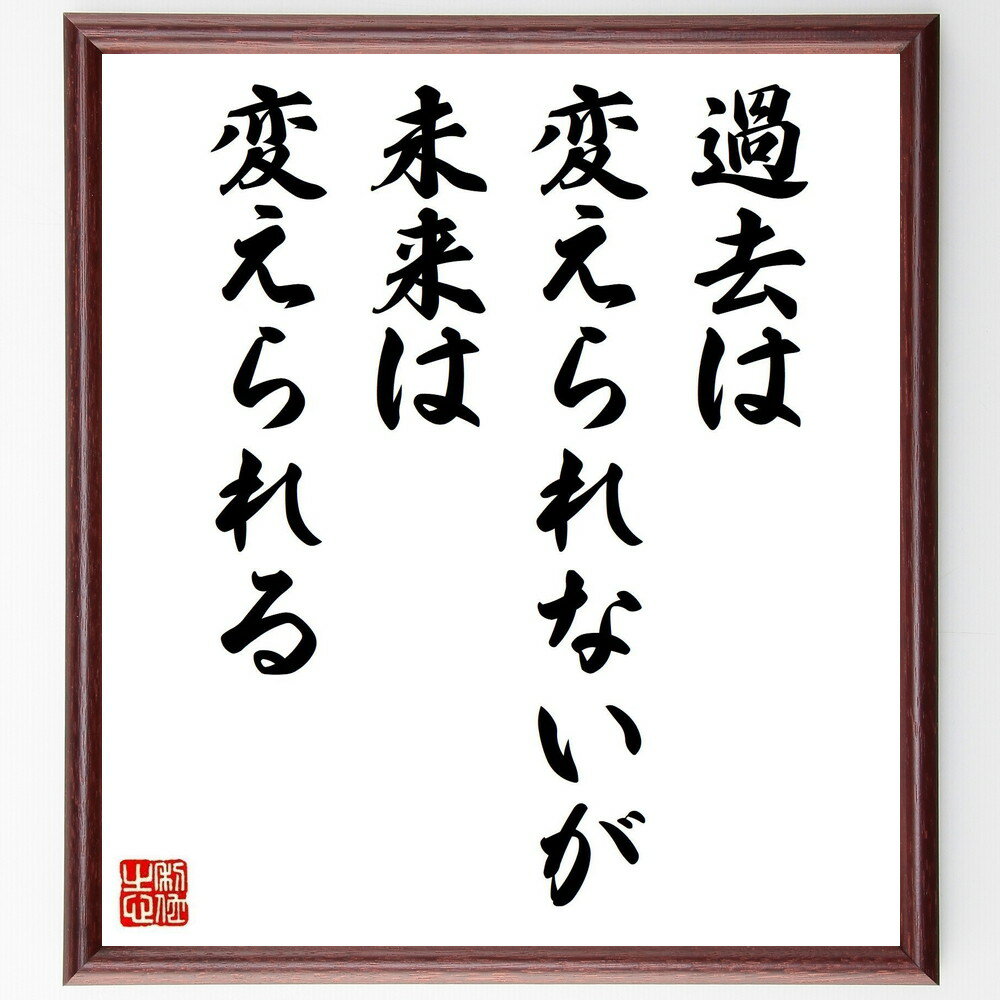 過去は
変えられないが
未来は
変えられる